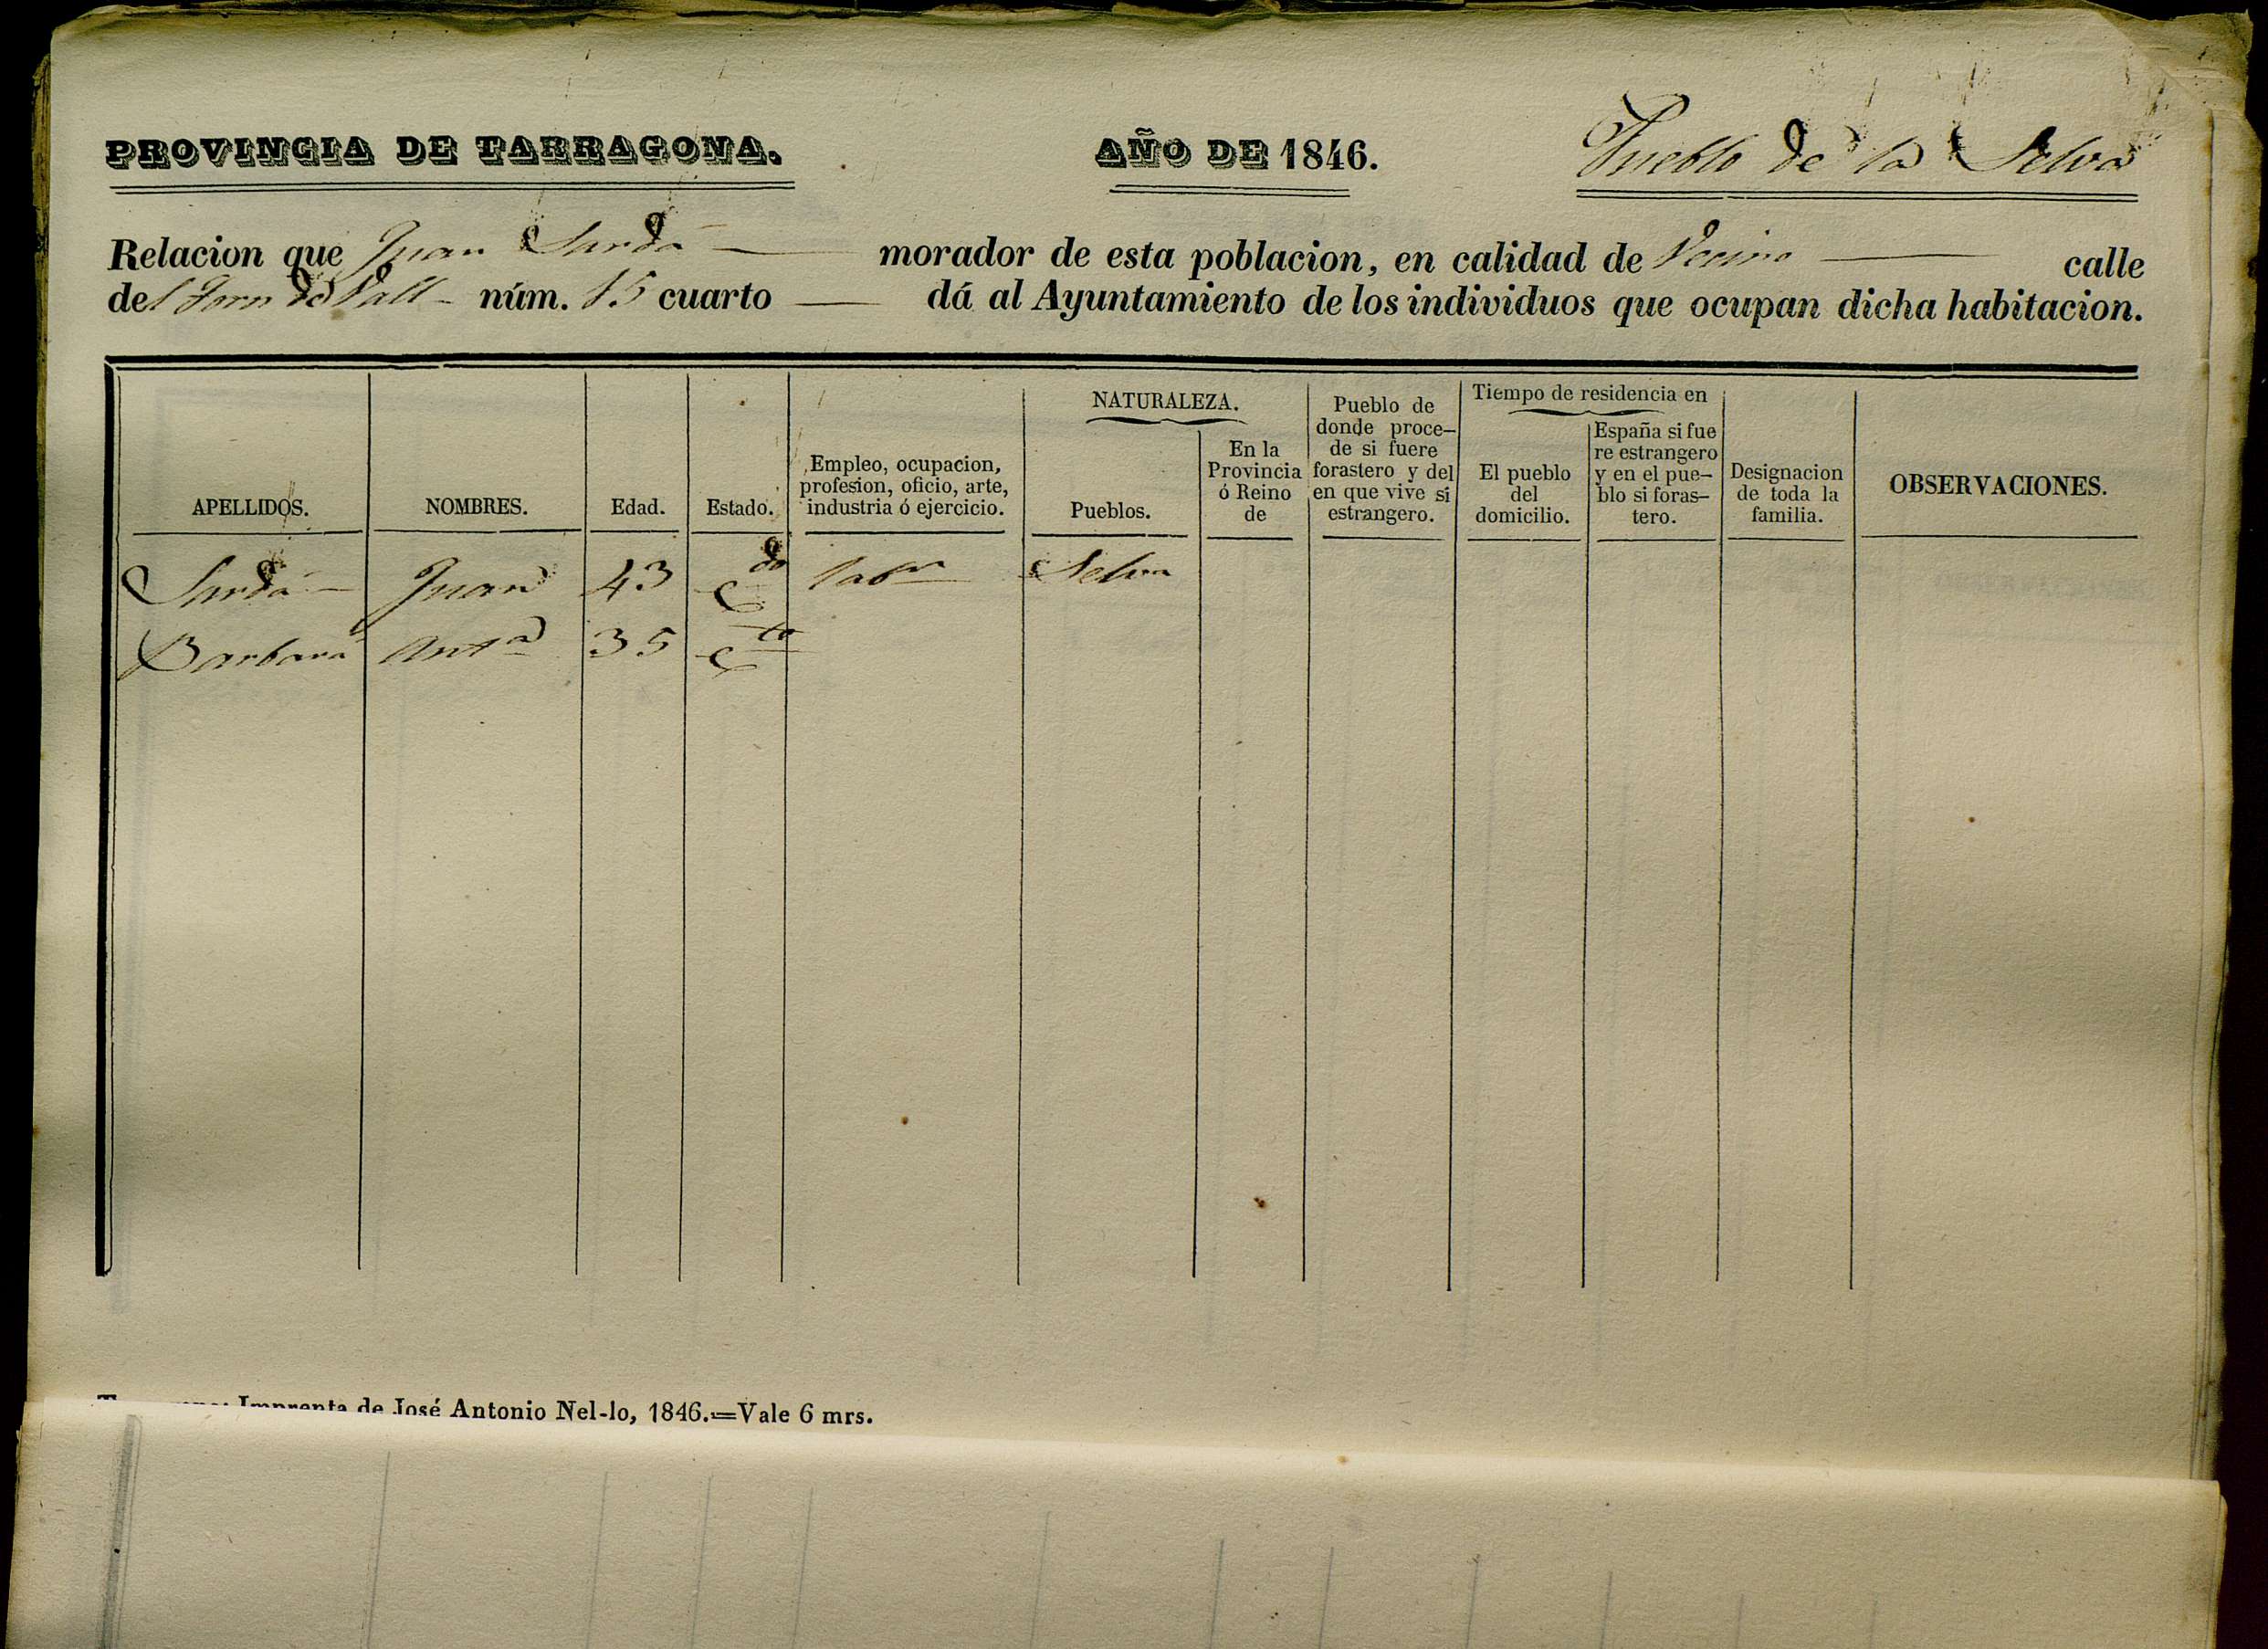 PROVINCIA DE TARRAGONA. AÑO DE 1846. Pueblo de la Selva
Relacion que Juan Sardá morador de esta poblacion, en calidad de Vecino calle
del Forn de Vall núm. 15 cuarto dá al Ayuntamiento de los individuos que ocupan dicha habitacion.
APELLIDOS.
NOMBRES.
Edad.
Estado.
Empleo, ocupacion,
profesion, oficio, arte,
industria ó ejercicio.
NATURALEZA.
Pueblos.
En la
Provincia
ó Reino
de
Pueblo de
donde proce-
de si fuere
forastero y del
en que vive si
estrangero.
Tiempo de residencia en
El pueblo
del
domicilio.
España si fue
re estrangero
y en el pue-
blo si foras-
tero.
Designacion
de toda la
familia.
OBSERVACIONES.
Sardá Juan 43 C.do labr Selva
Barbará Anta 35 C
Imprenta de José Antonio Nel-lo, 1846.=Vale 6 mrs.